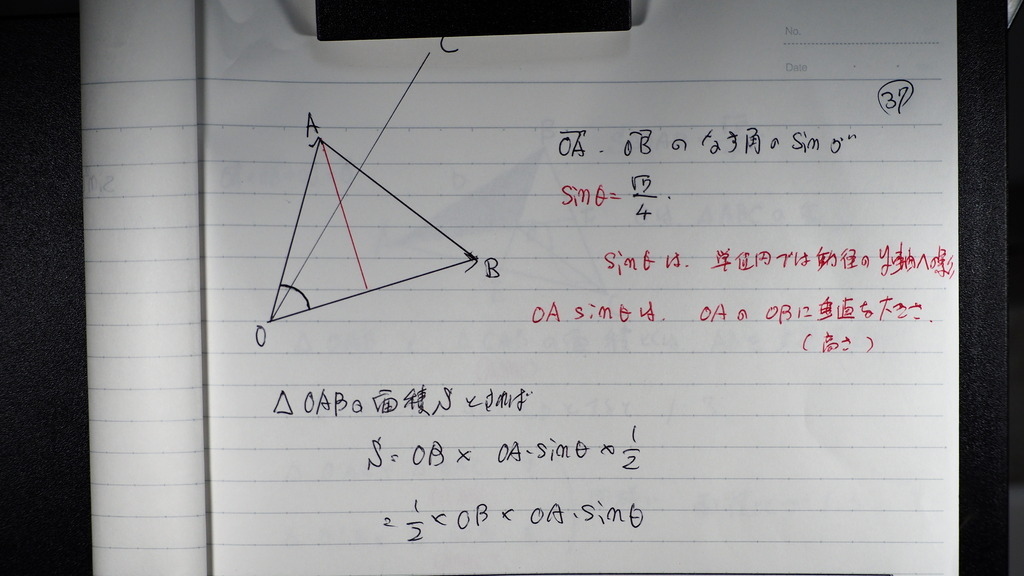 No.
Date
37
C
A
B
O
OA . OB のなす角の sin が
sinθ = √15/4.
sinθは. 単位円では動径のy軸への影
OA sinθは. OAの OBに垂直な大きさ.
(高さ)
△OABの面積Sとすれば
S = OB × OA・sinθ × 1/2
= 1/2 × OB × OA・sinθ